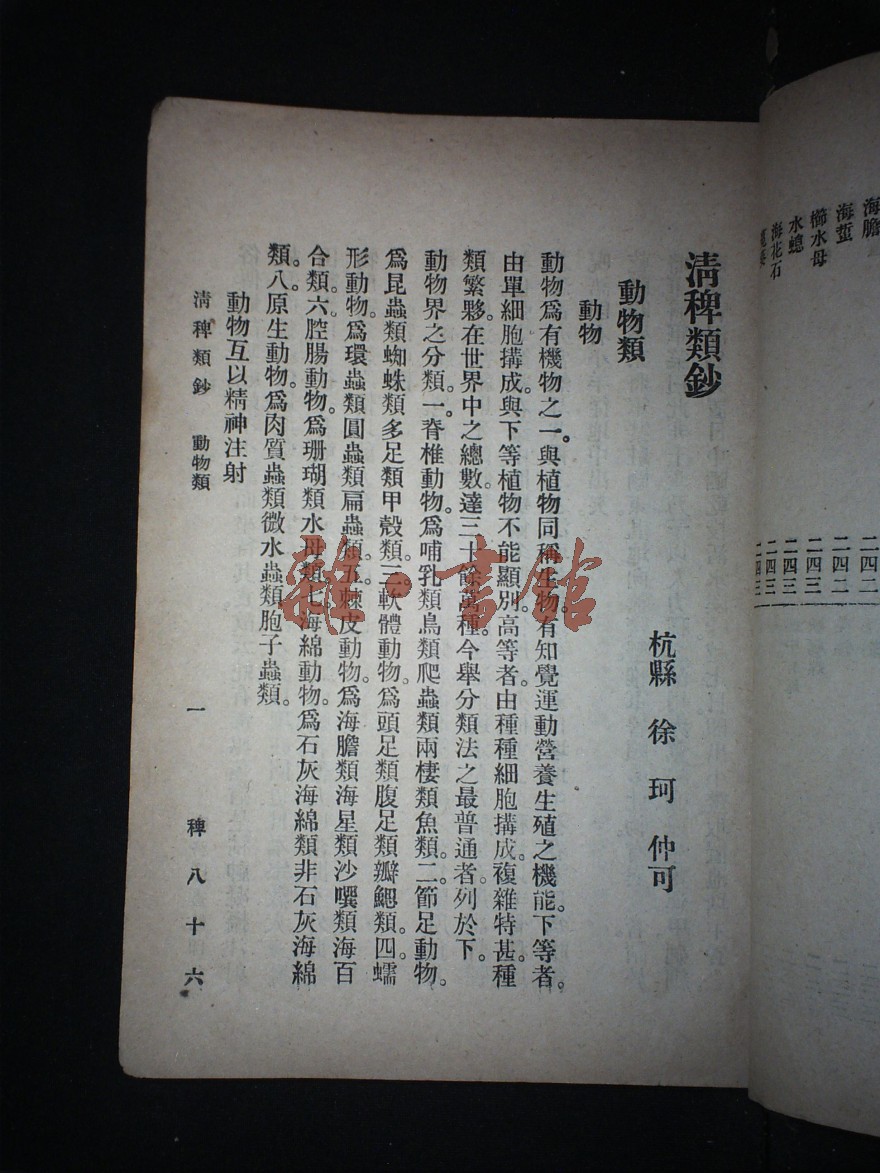 海膽
海蜇
櫛水母
水螅
海花石
二四二
二四二
二四三
二四三
二四三
二四三
清稗類鈔
杭縣 徐珂 仲可
動物類
動物
動物爲有機物之一。與植物同稱生物。有知覺運動營養生殖之機能。下等者。
由單細胞搆成。與下等植物不能顯別。高等者。由種種細胞搆成。複雜特甚。種
類繁夥。在世界中之總數。達三十餘萬種。今舉分類法之最普通者列於下。
動物界之分類。一。脊椎動物。爲哺乳類鳥類爬蟲類兩棲類魚類。二。節足動物。
爲昆蟲類蜘蛛類多足類甲殼類。三。軟體動物。爲頭足類腹足類瓣鰓類。四。蠕
形動物。爲環蟲類圓蟲類扁蟲類。五。棘皮動物。爲海膽類海星類沙噀類海百
合類。六。腔腸動物。爲珊瑚類水母類。七。海綿動物。爲石灰海綿類非石灰海綿
類。八。原生動物。爲肉質蟲類微水蟲類胞子蟲類。
動物互以精神注射
清稗類鈔 動物類 一 稗八十六
雜·書館